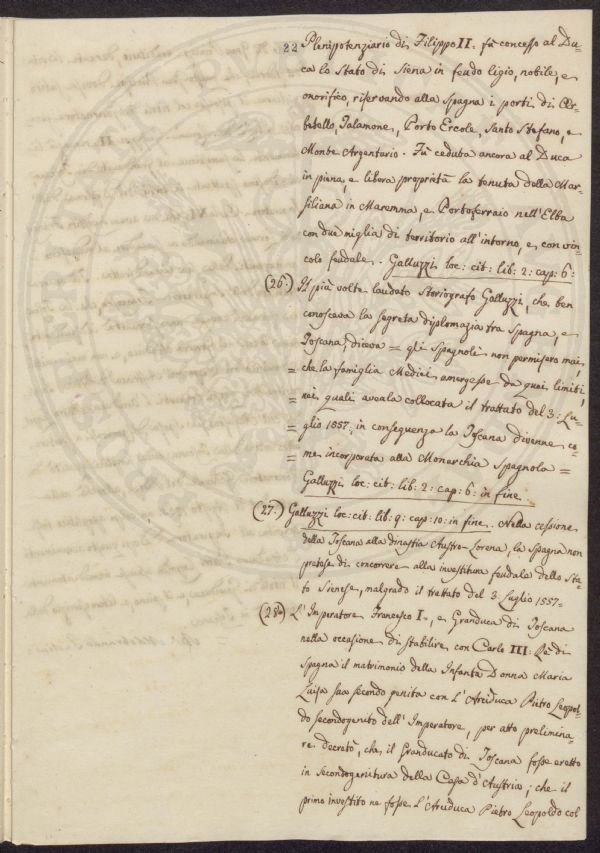 22 Plenipotenziario di Filippo II: fù concesso al Du=
ca lo Stato di Siena in feudo ligio, nobile, e
onorifico, riservando alla Spagna i porti di Or=
betello, Talamone, Porto Ercole, Santo Stefano, e
Monte Argentario. Fù ceduta ancora al Duca
in piena, e libera proprietà la tenuta della Mar=
siliana in Maremma, e Portoferraio nell'Elba
con due miglia di territorio all'intorno, e con vin=
colo feudale. Galluzzi loc: cit: lib: 2: cap: 6:
(26.) Il più volte laudato Storiografo Galluzzi, che ben
conosceva la segreta diplomazia tra Spagna, e
Toscana, diceva = gli Spagnoli non permisero mai,
= che la famiglia Medici emergesse da quei limiti,
= nei quali aveala collocata il trattato del 3: Lu=
= glio 1557: in conseguenza la Toscana divenne co=
= me incorporata alla Monarchia Spagnola =
Galluzzi loc: cit: lib: 2: cap: 6: in fine.
(27.) Galluzzi loc: cit: lib. 9: cap: 10: in fine. Nella cessione
della Toscana alla dinastia Austro-Lorena, la Spagna non
pretese di concorrere alla investitura feudale dello Sta=
to Sienese, malgrado il trattato del 3: Luglio 1557=
(28.) L'Imperatore Francesco I., e Granduca di Toscana
nella occasione di stabilire con Carlo III: Rè di
Spagna il matrimonio della Infanta Donna Maria
Luisa sua secondo genita con L'Arciduca Pietro Leopol=
do secondogenito dell'Imperatore, per atto prelimina=
re decretò, che il Granducato di Toscana fosse eretto
in Secondogenitura della Casa d'Austria; che il
primo investito ne fosse L'Arciduca Pietro Leopoldo col